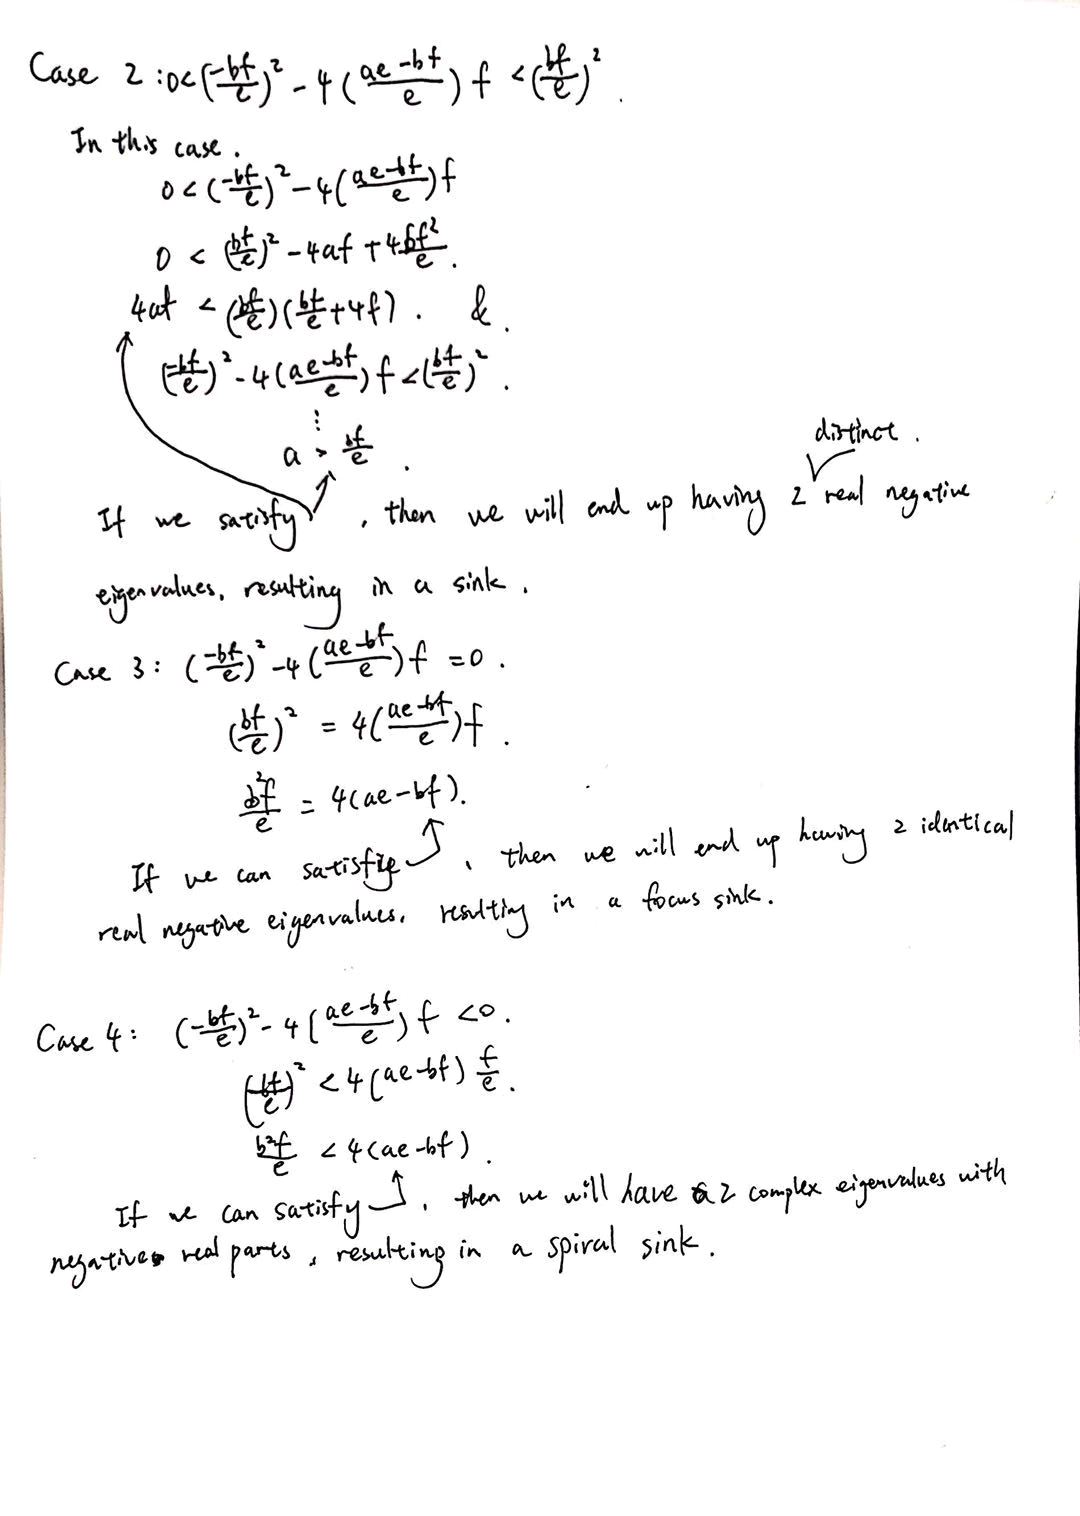 Case 2: 0<(-bf/e)² - 4(ae-bf/e)f <(bf/e)².
In this case.
0<(-bf/e)² - 4(ae-bf/e)f
0 < (bf/e)² - 4af + 4bf²/e.
4af < (bf/e)(bf/e+4f). &.
(-bf/e)² - 4(ae-bf/e)f <(bf/e)².
⋮
a > bf/e.
distinct.
If we satisfy , then we will end up having 2 real negative
eigenvalues, resulting in a sink.
Case 3: (-bf/e)² - 4(ae-bf/e)f = 0.
(bf/e)² = 4(ae-bf/e)f.
b²f/e = 4(ae-bf).
If we can satisfie , then we will end up having 2 identical
real negative eigenvalues, resulting in a focus sink.
Case 4: (-bf/e)² - 4(ae-bf/e)f <0.
(-bf/e)² < 4(ae-bf) f/e.
b²f/e < 4(ae-bf).
If we can satisfy , then we will have 2 complex eigenvalues with
negative real parts, resulting in a spiral sink.